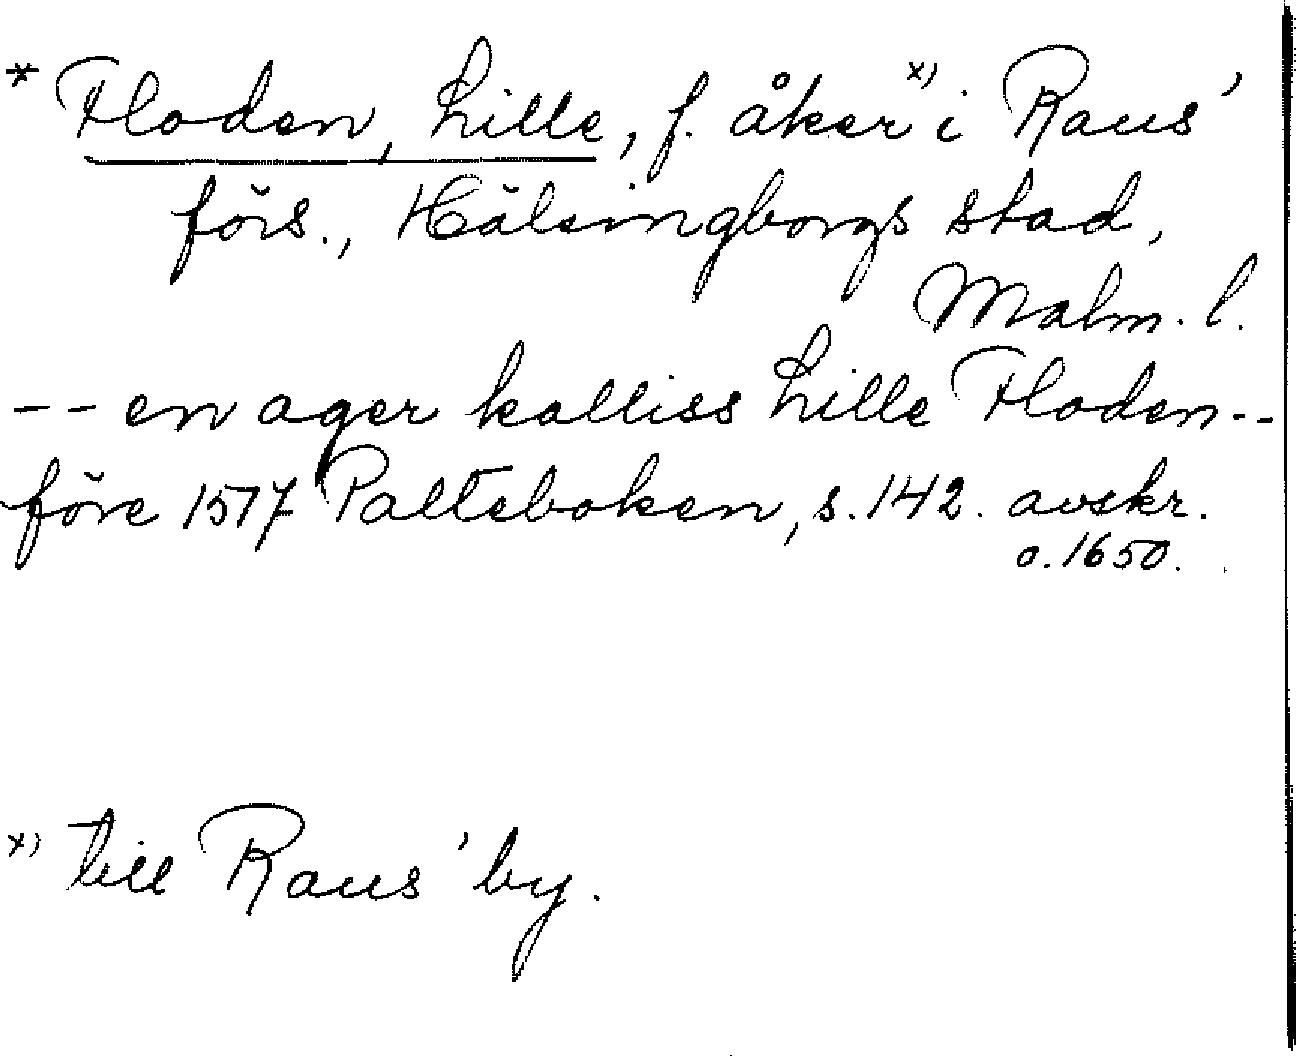 * Floden, Lille, f. åker x) i Raus'
förs., Hälsingborgs stad,
Malm. l.
-- en ager kalliss Lille Floden --
före 1517 Palteboken, s. 142. avskr.
o. 1650.
x) till Raus' by.